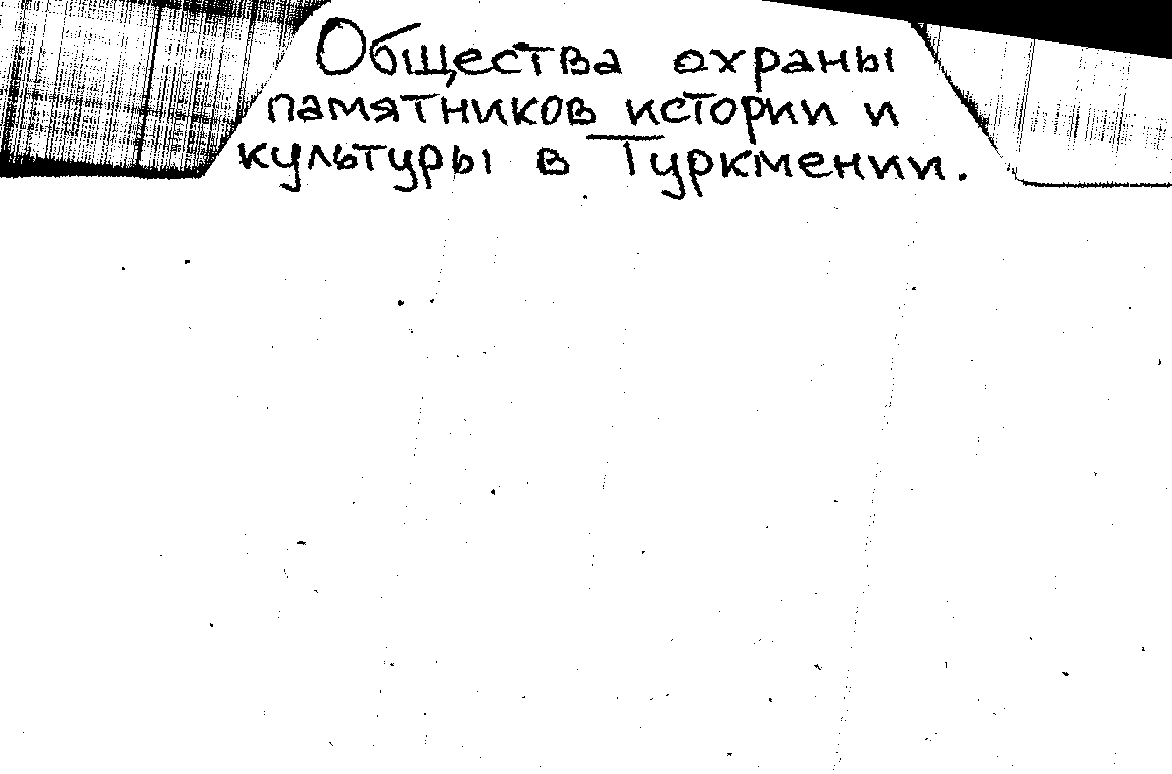 Общества охраны
памятников истории и
культуры в Туркмении.